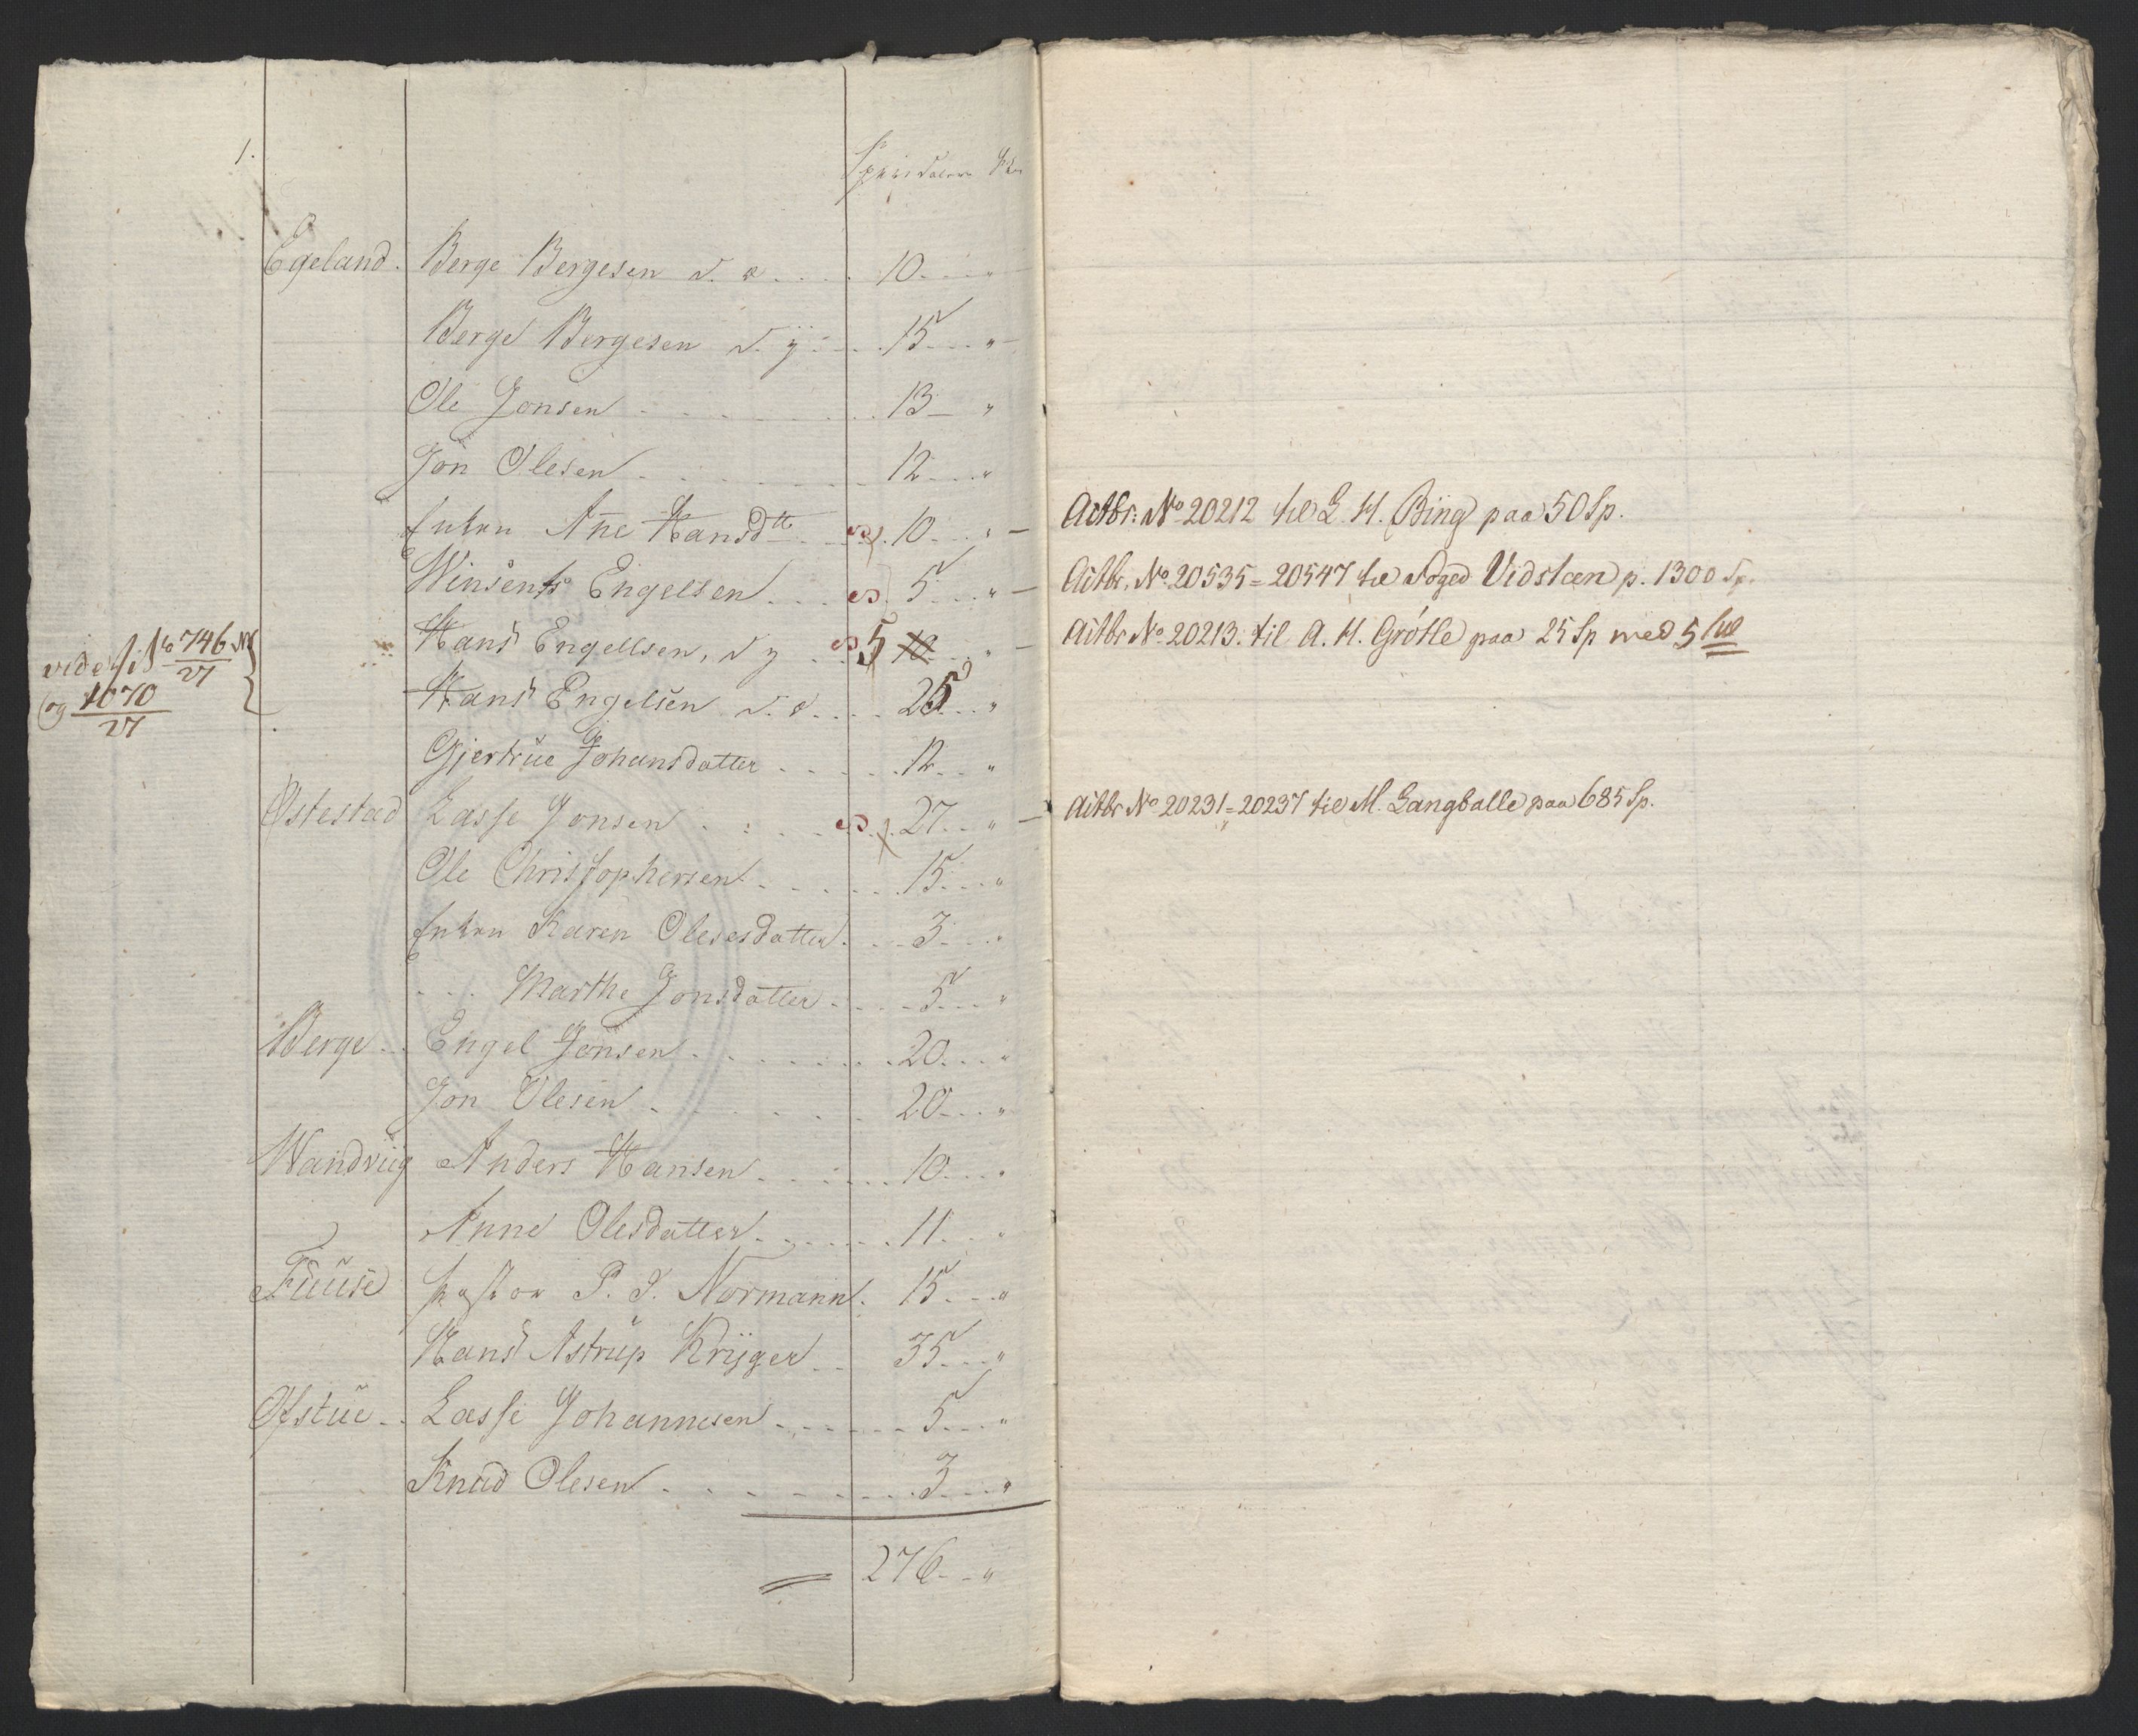 1.
Speciedaler
Egeland. Berge Bergesen d. æ .... 10 ... "
Berge Bergesen d. y .... 15 ... "
Ole Jonsen ... 13 — "
Jon Olesen ... 12 ... "
Enken Ane Hansdtt ... 10 ... " —
Winsents Engelsen ... 5 ... " —
Hans Engellsen, d y ... 5 10 ... " —
Hans Engelsen d. æ .... 25 ... "
Gjertrue Johansdatter ... 12 ... "
Østestad Lasse Jonsen ... 27 ... " —
Ole Christophersen ... 15 ... "
Enken Karen Olesesdatter ... 3 ... "
... Marthe Jonsdatter ... 5 ... "
Berge .. Engel Jonsen ... 20 ... "
Jon Olesen ... 20 ... "
Wandviig Anders Hansen ... 10 ... "
Anne Olesdatter ... 11 ... "
Fuuse Pastor P. D. Normann. 15 ... "
Hans Astrup Krijger .. 35 ... "
Ofstue .. Lasse Johannesen ... 5 ... "
Knud Olesen ... 3 ... "
276 .. "
vide No 746
27
og 1070
27
Actbr: No 20212 til L. H. Bing paa 50 Sp.
Actbr. No 20535 = 20547 til Foged Vidsteen p. 1300 Sp.
Actbr No 20213. til A. H. Grótle paa 25 Sp med 5
Actbr No 20231 = 20237 til M. Langballe paa 685 Sp.